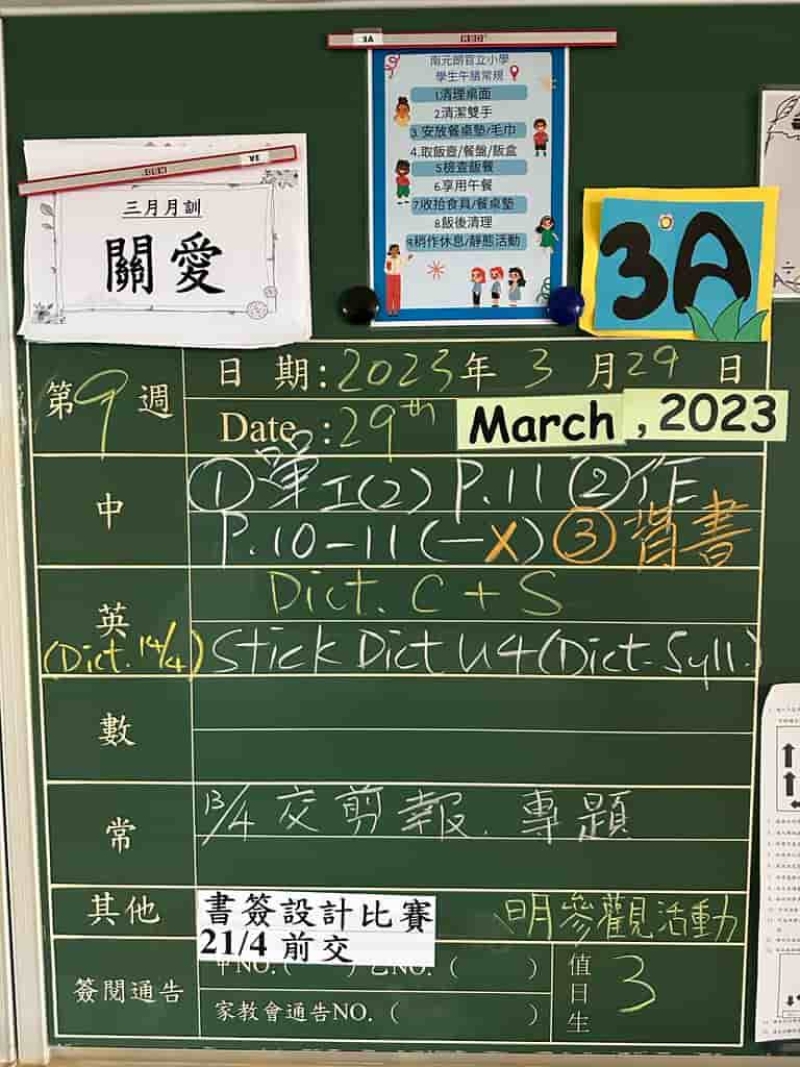 3A
南元朗官立小學
學生午膳常規
1.清理桌面
2.清潔雙手
3.安放餐桌墊/毛巾
4.取飯壺/餐盤/飯盒
5.檢查飯餐
6.享用午餐
7.收拾食具/餐桌墊
8.飯後清理
9.稍作休息/靜態活動
三月月訓
關愛
3A
第9週
日期:2023年3月29日
Date :29th March,2023
中
①單工(2) P.11 ②作
P.10-11(一X)③背書
英
(Dict. 14/4)
Dict. C + S
Stick Dict U4(Dict. Syll.)
數
常
13/4 交剪報.專題
其他
書簽設計比賽
21/4 前交
明參觀活動
簽閱通告
NO.( ) NO.( )
家教會通告NO.( )
值日生
3